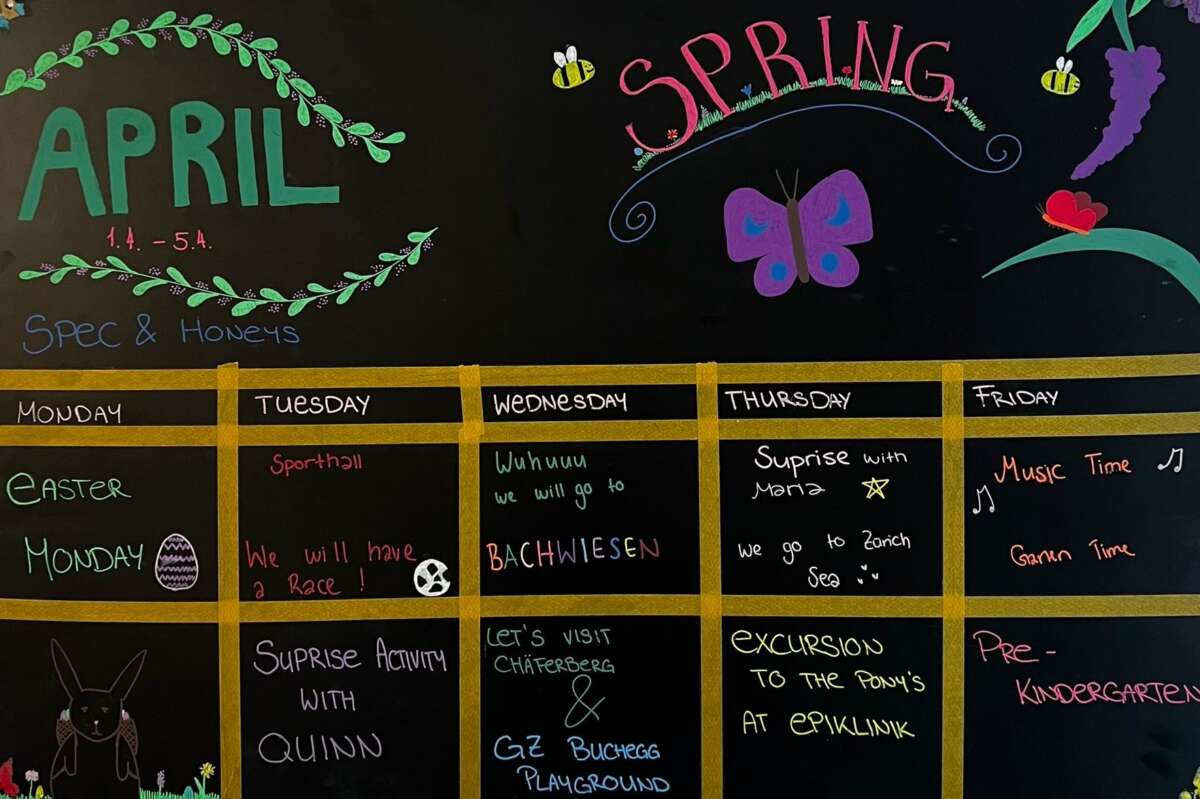 APRIL
1.4. - 5.4.
SPRING
SPEC & HONEYS
MONDAY
TUESDAY
WEDNESDAY
THURSDAY
FRIDAY
EASTER
MONDAY
Sporthall
We will have
a Race !
Wuhuuu
we will go to
BACHWIESEN
Suprise with
Maria
we go to Zürich
Sea
Music Time
Garten Time
SUPRISE ACTIVITY
WITH
QUINN
LET'S VISIT
CHÄFERBERG
&
GZ BUCHEGG
PLAYGROUND
EXCURSION
TO THE PONY'S
AT EPIKLINIK
PRE-
KINDERGARTEN